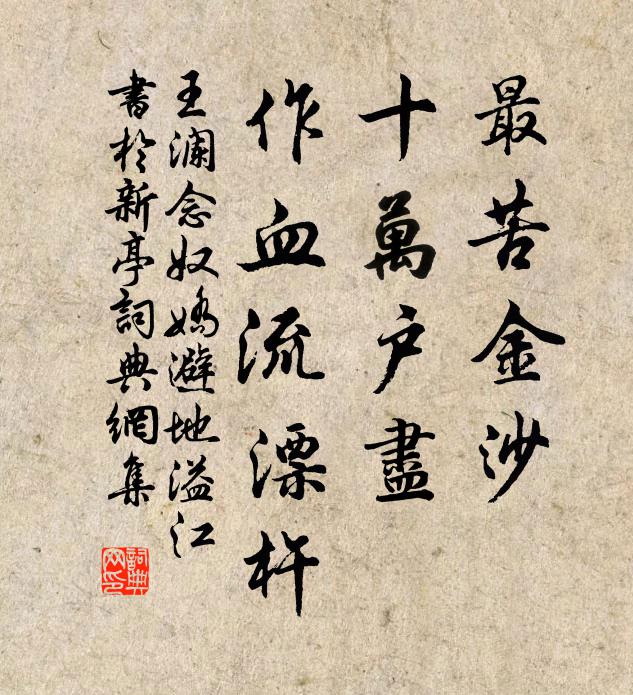 最苦金沙
十萬户盡
作血流漂杵
王瀾念奴嬌避地溢江
書於新亭詞典網集
詞典网印